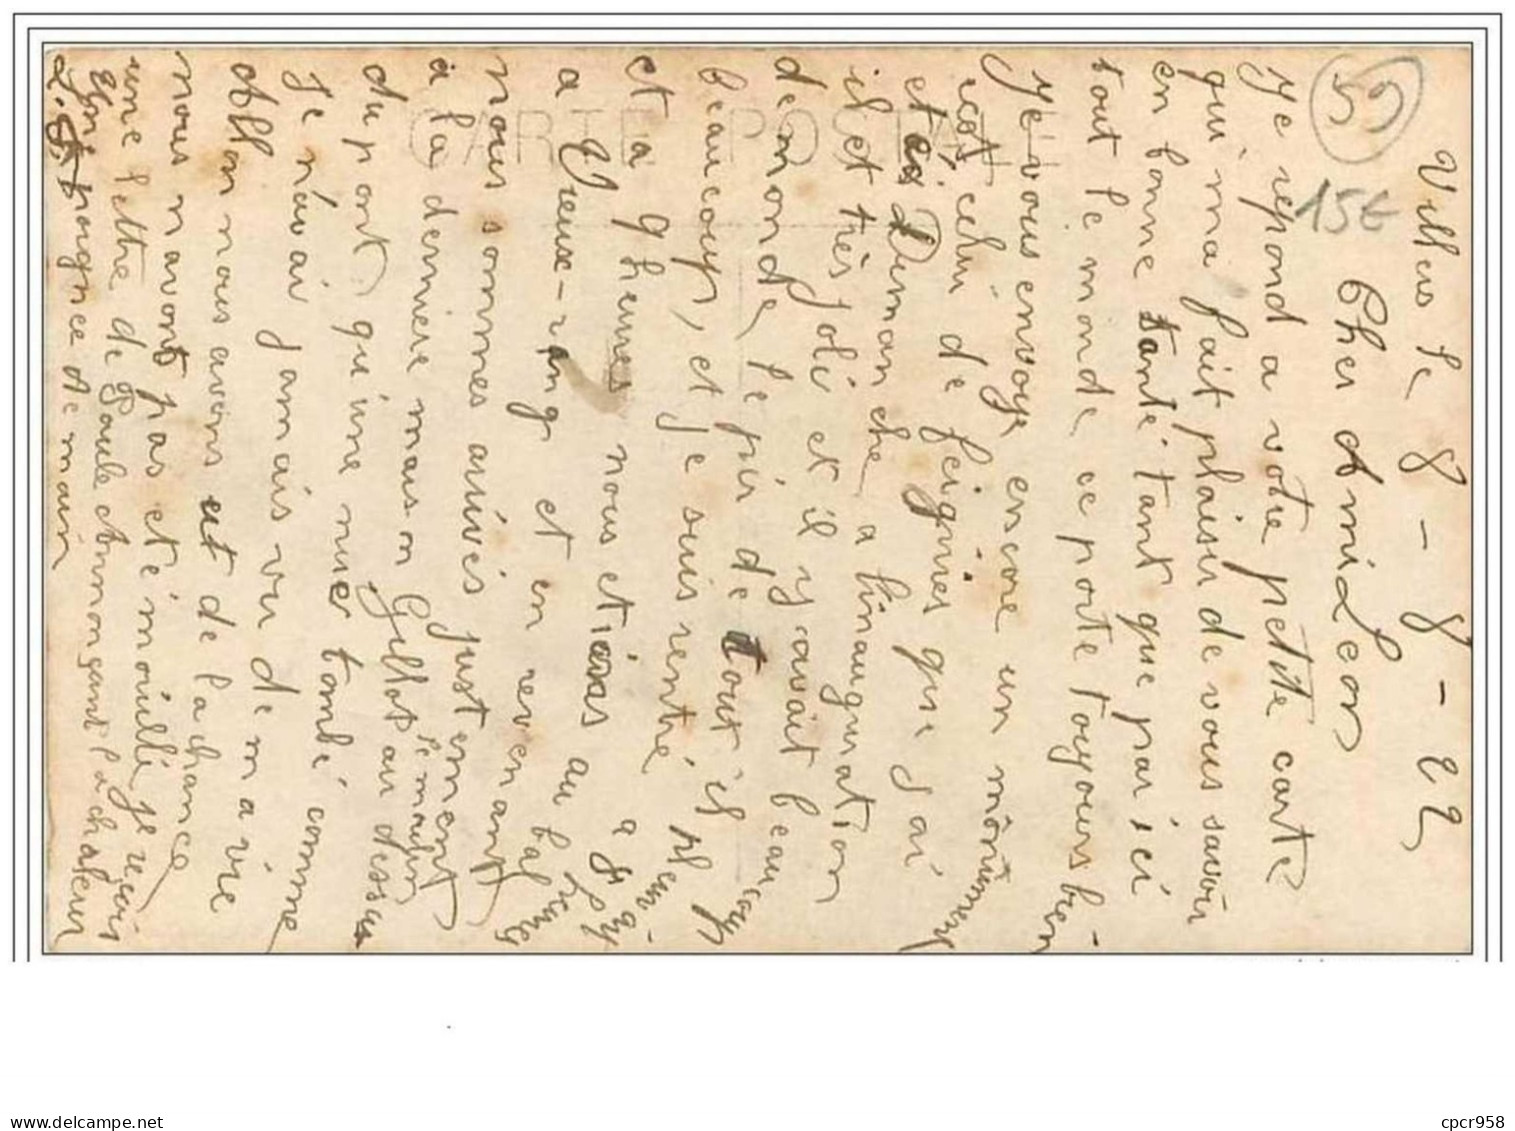 Villers le 8 - 8 - 22
Cher Ami Léon
Je repond a votre petite carte
qui m'a fait plaisir de vous savoir
en bonne santé. tant que par ici
tout le monde ce porte toujours bien -
Je vous envoye encore un mônument
icest celui de feignies que j'ai
etais Dimanche a l'inauguration
il et très joli et il y avait beaucoup
de monde, le pir de tout il pleuvai
beaucoup, et je suis rentré
et a 9 heures nous etions au bal
a Vieux-rang et en revenant
nous sommes arrivés justement
a la derniere maison Gillot au dessus
du pont, qu'une nuer tombé comme
Je n'avai jamais vu de ma vie
Allon nous avons eut de la chance
nous n'avont pas eté mouillé, je reçoir
une lettre de Paule Annonçant la
poignee de main
CARTE POSTALE
59
15€
delcampe.net
cpcr958